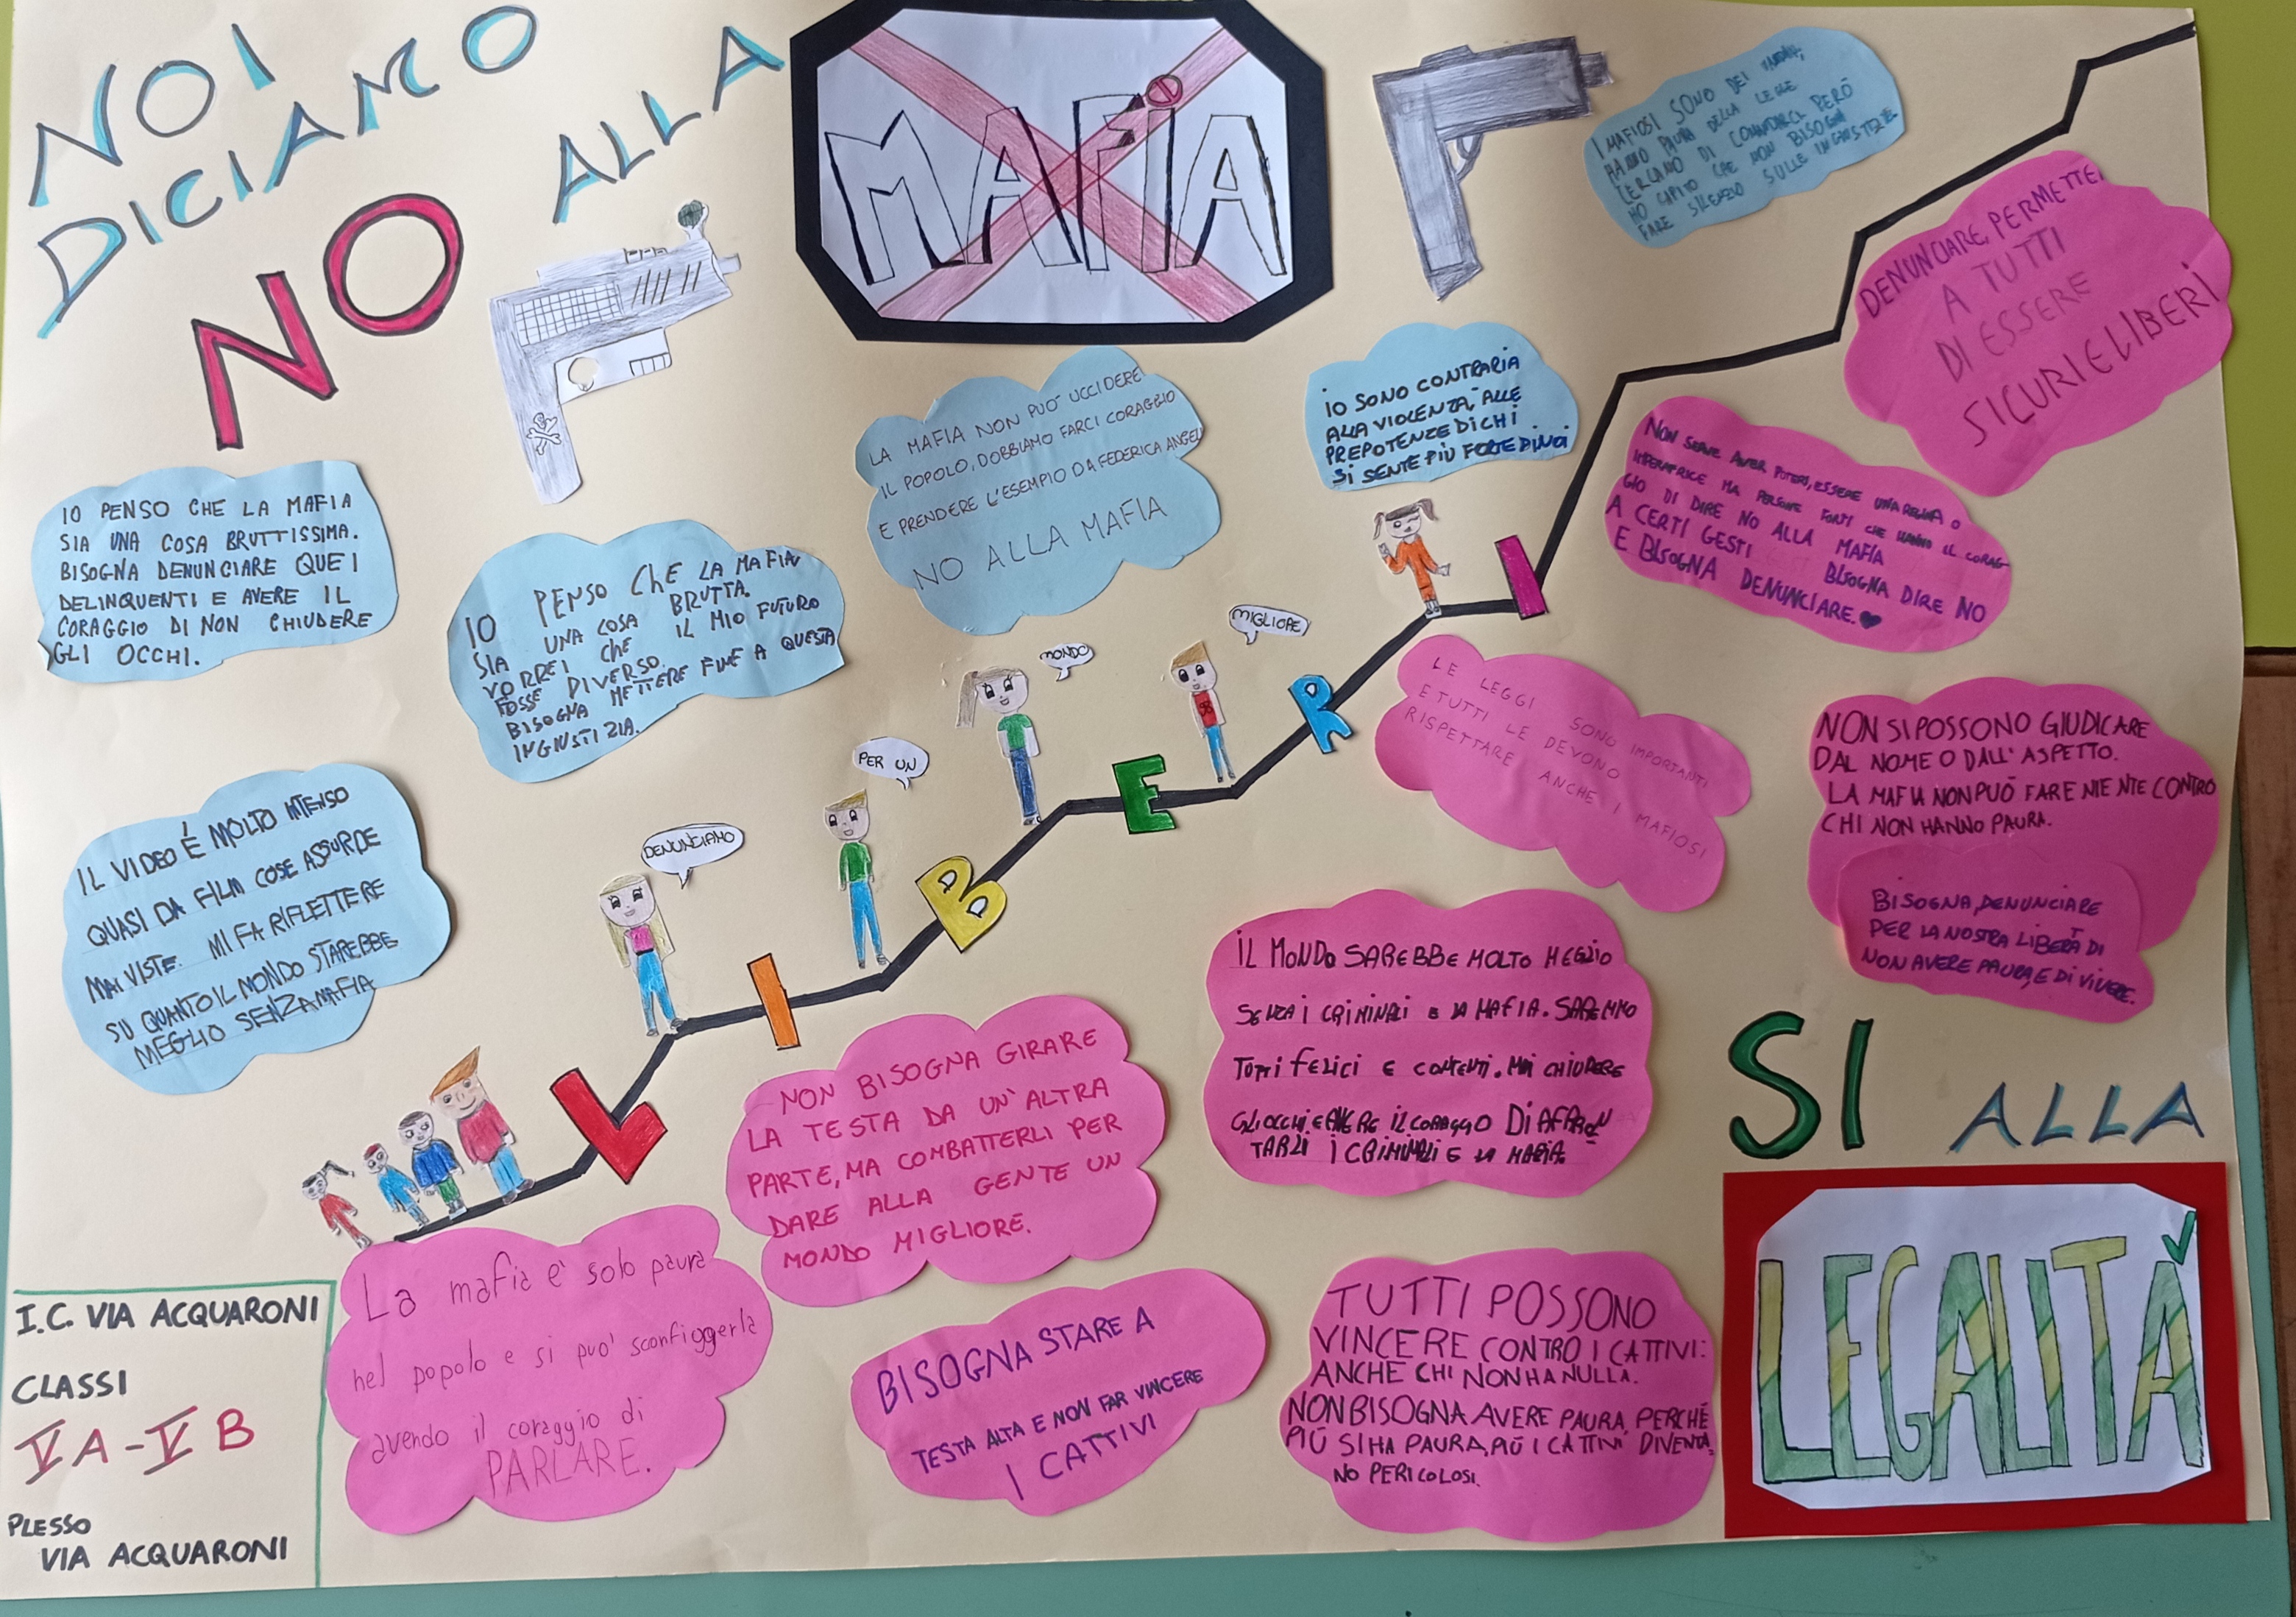 NOI
DICIAMO
NO ALLA
MAFIA
I MAFIOSI SONO DEI
HANNO PAURA DELLA LEGGE
CERCANO DI COMANDARCI PERÒ
HO CAPITO CHE NON BISOGNA
FARE SILENZIO SULLE INGIUSTIZIE
DENUNCIARE, PERMETTE
A TUTTI
DI ESSERE
SICURI E LIBERI
IO SONO CONTRARIA
ALLA VIOLENZA, ALLE
PREPOTENZE DI CHI
SI SENTE PIÙ FORTE DI NOI
LA MAFIA NON PUÒ UCCIDERE
IL POPOLO, DOBBIAMO FARCI CORAGGIO
E PRENDERE L'ESEMPIO DA FEDERICA ANGELI
NO ALLA MAFIA
NON SERVE AVER POTERI, ESSERE UNA REGINA O
IMPERATRICE MA PERSONE FORTI CHE HANNO IL CORAG-
GIO DI DIRE NO ALLA MAFIA
A CERTI GESTI BISOGNA DIRE NO
E BISOGNA DENUNCIARE.
IO PENSO CHE LA MAFIA
SIA UNA COSA BRUTTISSIMA.
BISOGNA DENUNCIARE QUEI
DELINQUENTI E AVERE IL
CORAGGIO DI NON CHIUDERE
GLI OCCHI.
IO PENSO CHE LA MAFIA
SIA UNA COSA BRUTTA.
VORREI CHE IL MIO FUTURO
FOSSE DIVERSO.
BISOGNA METTERE FINE A QUESTA
INGIUSTIZIA.
IL VIDEO È MOLTO INTENSO
QUASI DA FILM COSE ASSURDE
MAI VISTE. MI FA RIFLETTERE
SU QUANTO IL MONDO STAREBBE
MEGLIO SENZA MAFIA
DENUNCIAMO
PER UN
MONDO
MIGLIORE
L
I
B
E
R
I
LE LEGGI SONO IMPORTANTI
E TUTTI LE DEVONO
RISPETTARE ANCHE I MAFIOSI
NON SI POSSONO GIUDICARE
DAL NOME O DALL'ASPETTO.
LA MAFIA NON PUÒ FARE NIENTE CONTRO
CHI NON HANNO PAURA.
BISOGNA, DENUNCIARE
PER LA NOSTRA LIBERTÀ DI
NON AVERE PAURA, E DI VIVERE.
IL MONDO SAREBBE MOLTO MEGLIO
SENZA I CRIMINALI E LA MAFIA. SAREMMO
TUTTI FELICI E CONTENTI. MAI CHIUDERE
GLI OCCHI E AVERE IL CORAGGIO DI AFFRON
TARLI I CRIMINALI E LA MAFIA.
NON BISOGNA GIRARE
LA TESTA DA UN'ALTRA
PARTE, MA COMBATTERLI PER
DARE ALLA GENTE UN
MONDO MIGLIORE.
La mafia e' solo paura
nel popolo e si puo' sconfiggerla
avendo il coraggio di
PARLARE.
BISOGNA STARE A
TESTA ALTA E NON FAR VINCERE
I CATTIVI
TUTTI POSSONO
VINCERE CONTRO I CATTIVI:
ANCHE CHI NON HA NULLA.
NON BISOGNA AVERE PAURA, PERCHÉ
PIÙ SI HA PAURA, PIÙ I CATTIVI DIVENTA
NO PERICOLOSI.
SI ALLA
LEGALITÀ
I.C. VIA ACQUARONI
CLASSI
V A - V B
PLESSO
VIA ACQUARONI